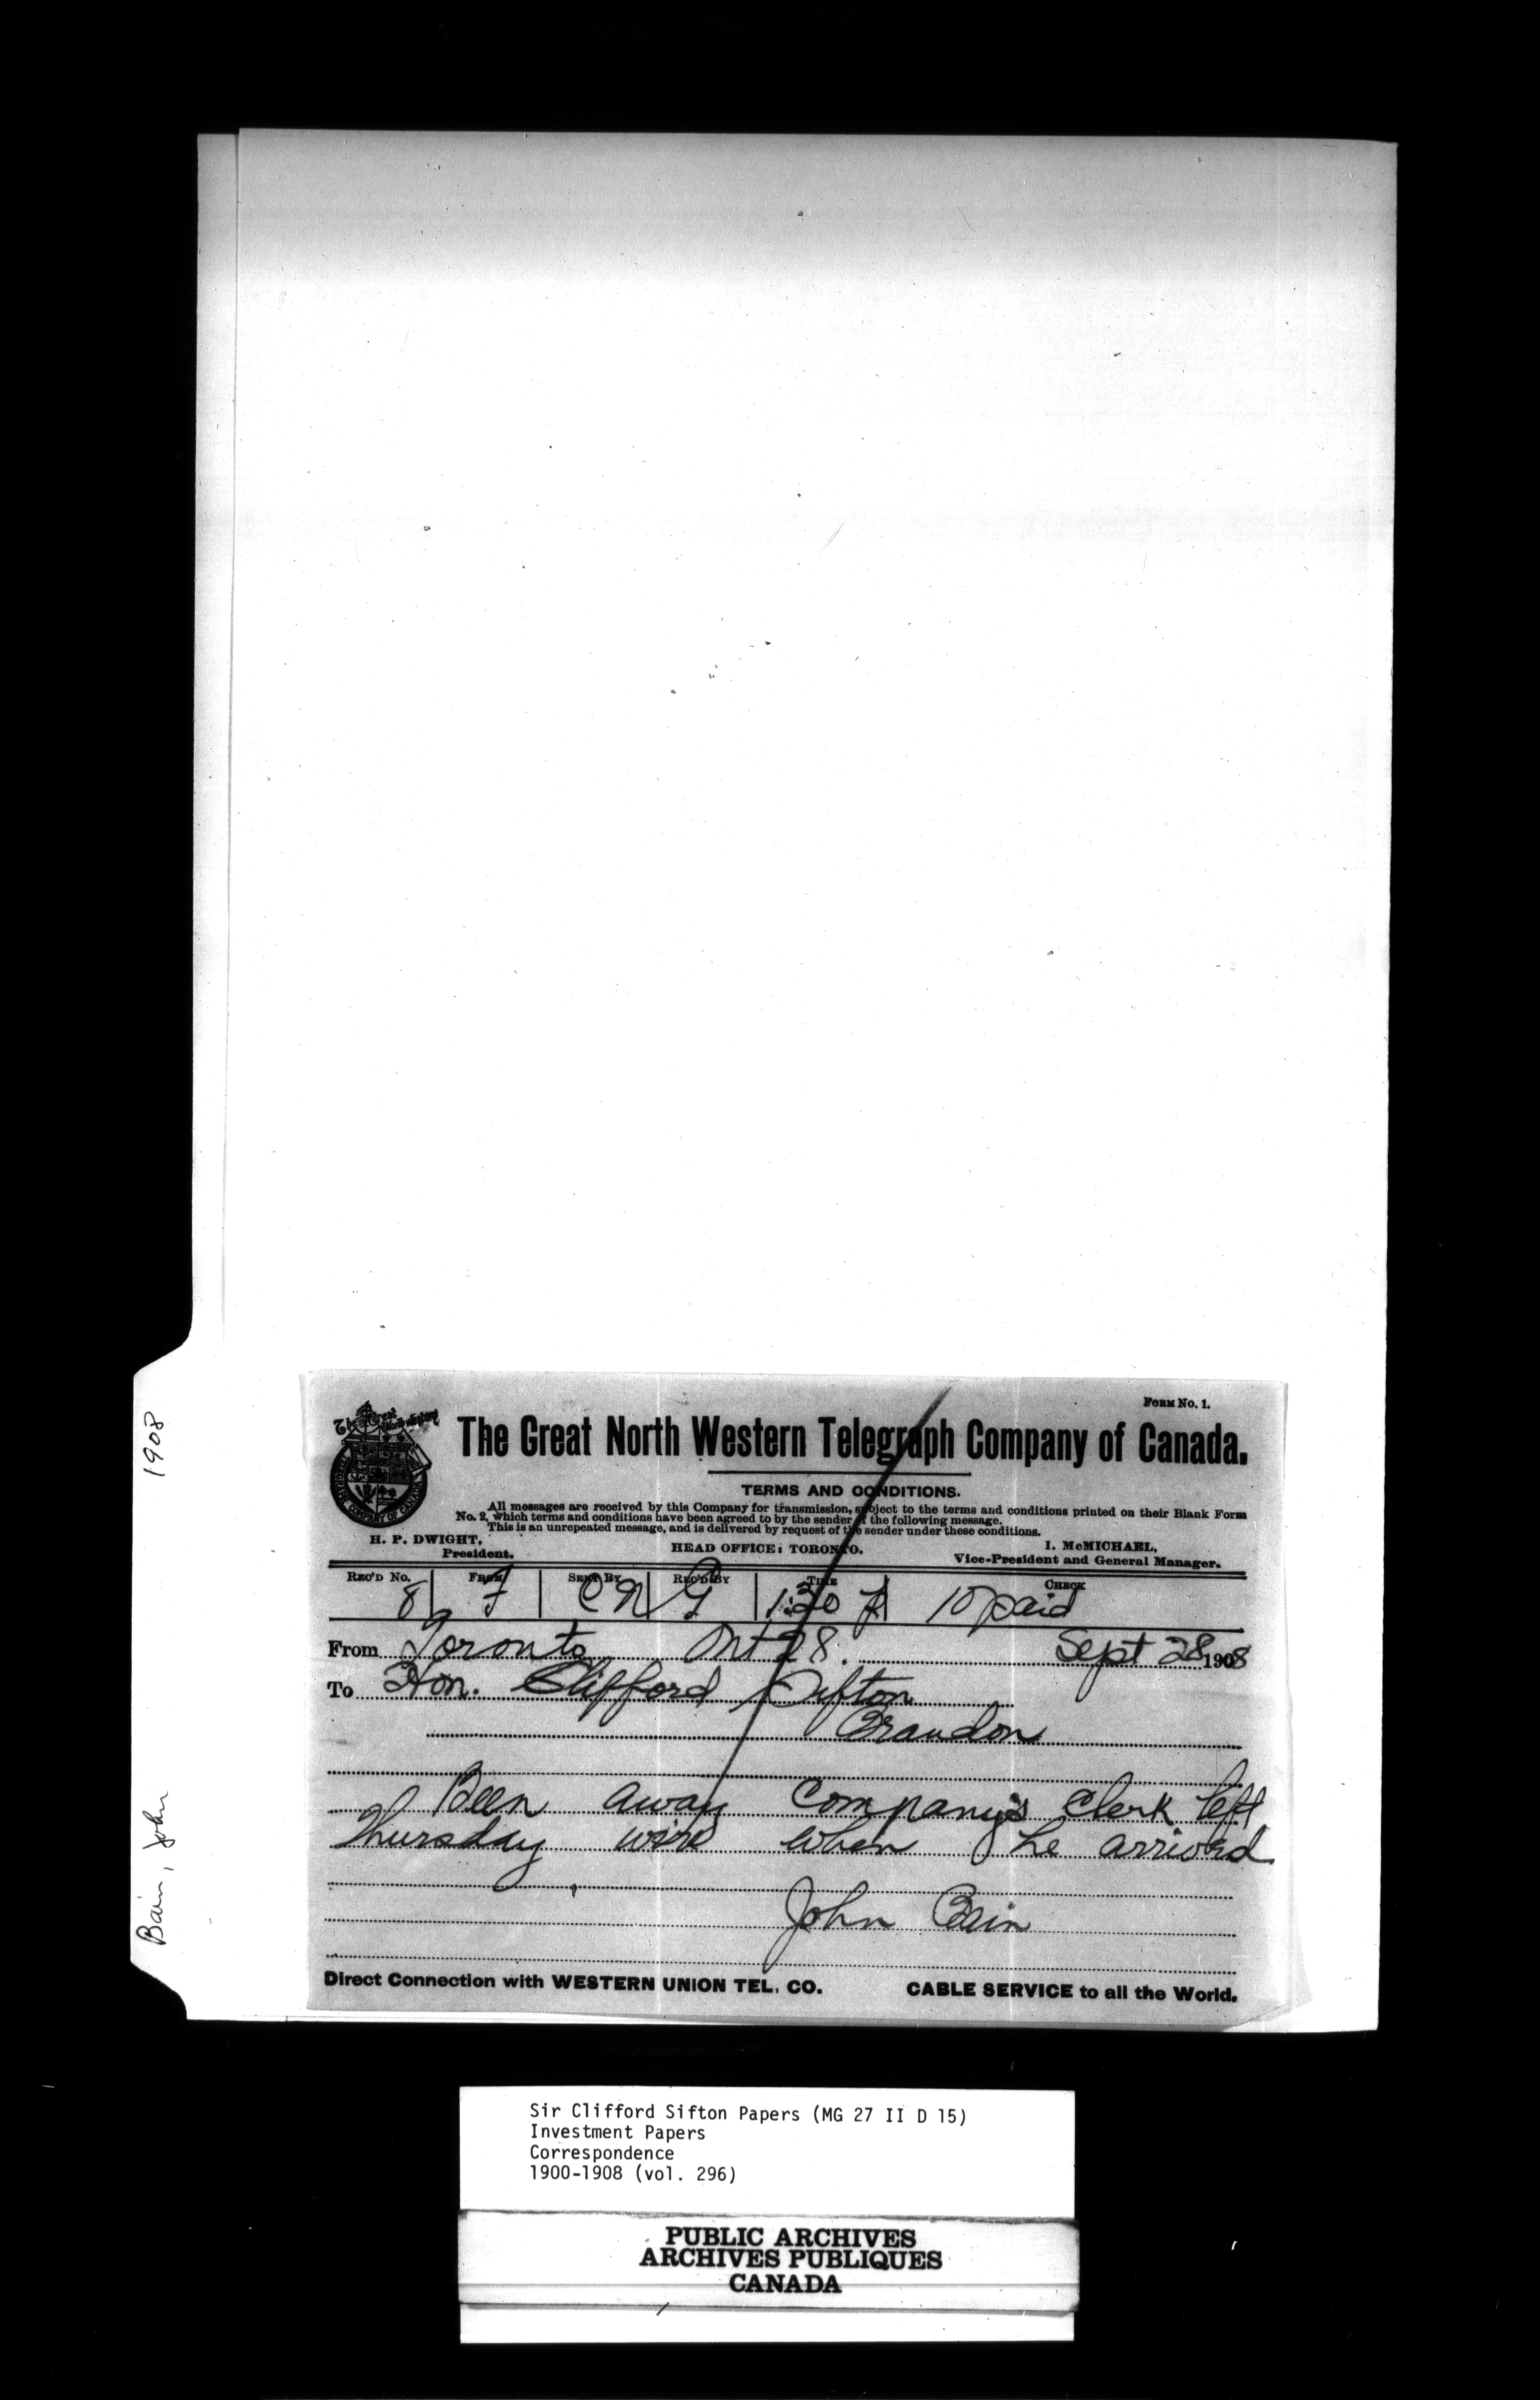 1908
Bain, John
FORM No. 1.
The Great North Western
TELEGRAPH COMPANY OF CANADA
The Great North Western Telegraph Company of Canada.
TERMS AND CONDITIONS.
All messages are received by this Company for transmission, subject to the terms and conditions printed on their Blank Form
No. 2, which terms and conditions have been agreed to by the sender of the following message.
This is an unrepeated message, and is delivered by request of the sender under these conditions.
H. P. DWIGHT, President.
HEAD OFFICE: TORONTO.
I. McMICHAEL, Vice-President and General Manager.
REC'D No. FROM SENT BY REC'D BY TIME CHECK
8 F CN G 1:30 p 10 paid
From Toronto Ont 28. Sept 28 1908
To Hon. Clifford Sifton
Brandon
Been away Company's clerk left
Thursday wire when he arrived
John Bain
Direct Connection with WESTERN UNION TEL. CO. CABLE SERVICE to all the World.
Sir Clifford Sifton Papers (MG 27 II D 15)
Investment Papers
Correspondence
1900-1908 (vol. 296)
PUBLIC ARCHIVES
ARCHIVES PUBLIQUES
CANADA